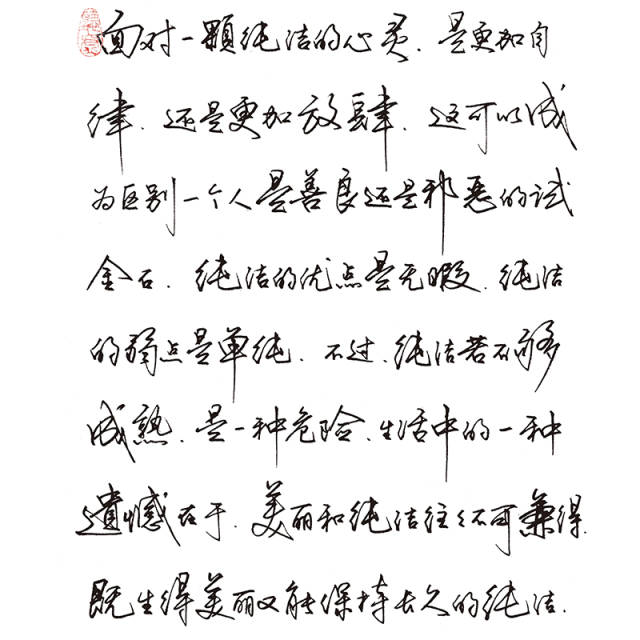 面对一颗纯洁的心灵.是更加自
律.还是更加放肆.这可以成
为区别一个人是善良还是邪恶的试
金石.纯洁的优点是无暇.纯洁
的弱点是单纯.不过.纯洁若不够
成熟.是一种危险.生活中的一种
遗憾在于.美丽和纯洁往往不可兼得.
既生得美丽又能保持长久的纯洁.